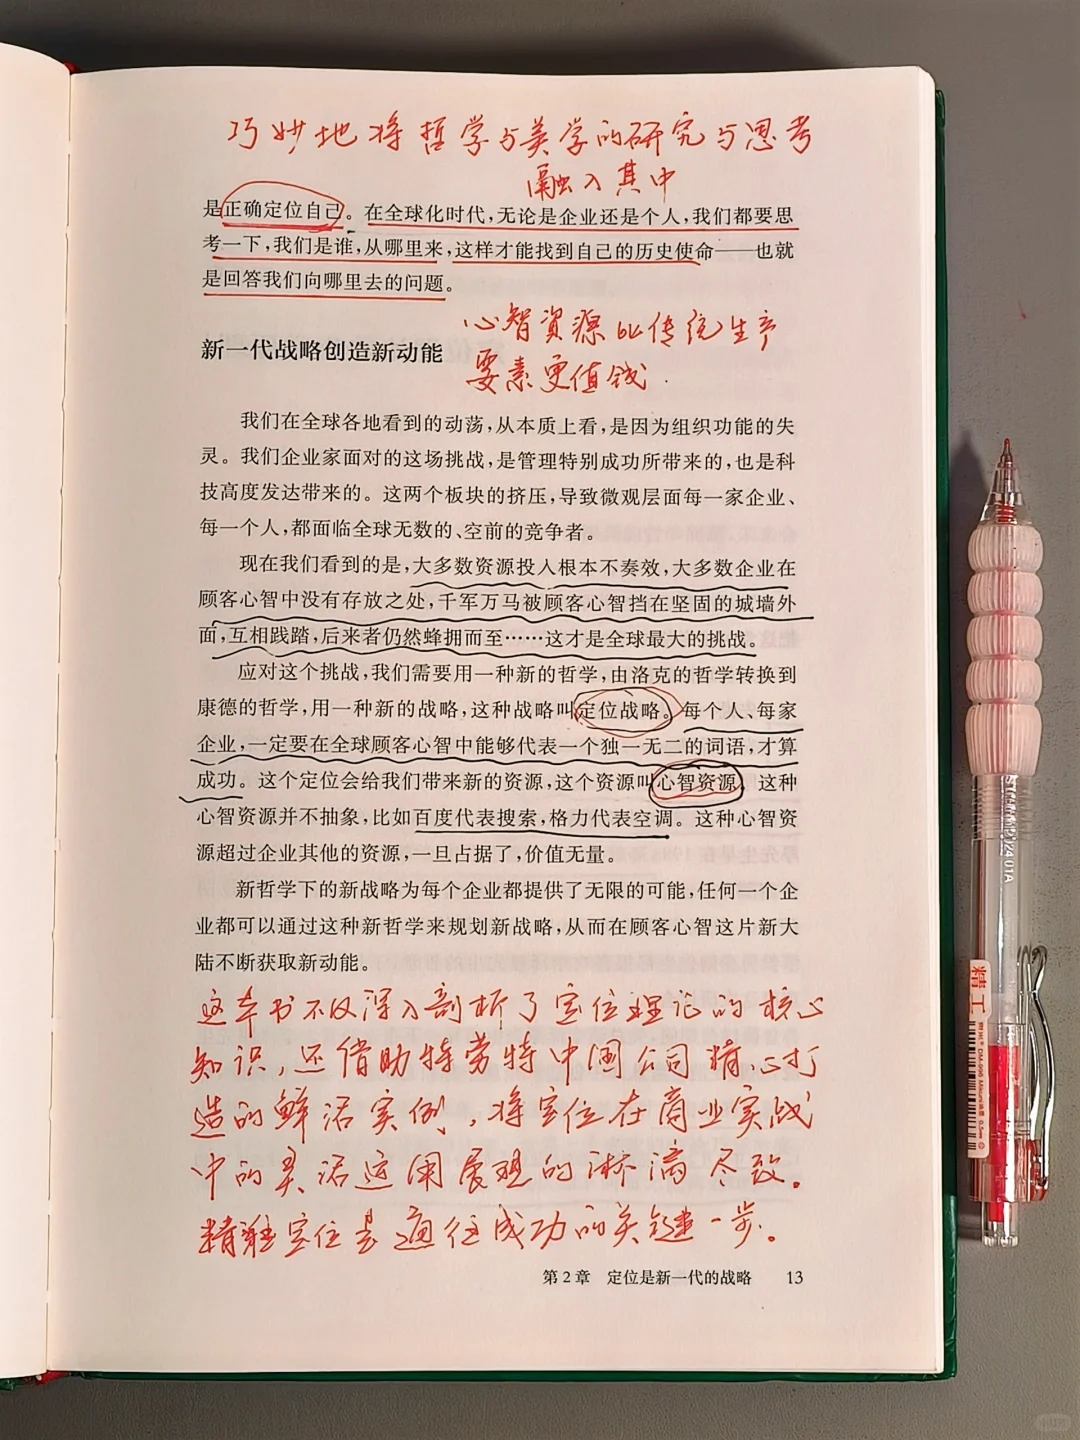 巧妙地将哲学与美学的研究与思考
融入其中
是正确定位自己。在全球化时代,无论是企业还是个人,我们都要思
考一下,我们是谁,从哪里来,这样才能找到自己的历史使命——也就
是回答我们向哪里去的问题。
心智资源比传统生产
要素更值钱.
新一代战略创造新动能
我们在全球各地看到的动荡,从本质上看,是因为组织功能的失
灵。我们企业家面对的这场挑战,是管理特别成功所带来的,也是科
技高度发达带来的。这两个板块的挤压,导致微观层面每一家企业、
每一个人,都面临全球无数的、空前的竞争者。
现在我们看到的是,大多数资源投入根本不奏效,大多数企业在
顾客心智中没有存放之处,千军万马被顾客心智挡在坚固的城墙外
面,互相践踏,后来者仍然蜂拥而至……这才是全球最大的挑战。
应对这个挑战,我们需要用一种新的哲学,由洛克的哲学转换到
康德的哲学,用一种新的战略,这种战略叫定位战略。每个人、每家
企业,一定要在全球顾客心智中能够代表一个独一无二的词语,才算
成功。这个定位会给我们带来新的资源,这个资源叫心智资源。这种
心智资源并不抽象,比如百度代表搜索,格力代表空调。这种心智资
源超过企业其他的资源,一旦占据了,价值无量。
新哲学下的新战略为每个企业都提供了无限的可能,任何一个企
业都可以通过这种新哲学来规划新战略,从而在顾客心智这片新大
陆不断获取新动能。
这本书不仅深入剖析了定位理论的核心
知识,还借助特劳特中国公司精心打
造的鲜活实例,将定位在商业实战
中的灵活运用展现的淋漓尽致。
精准定位是通往成功的关键一步。
第2章 定位是新一代的战略 13
精工